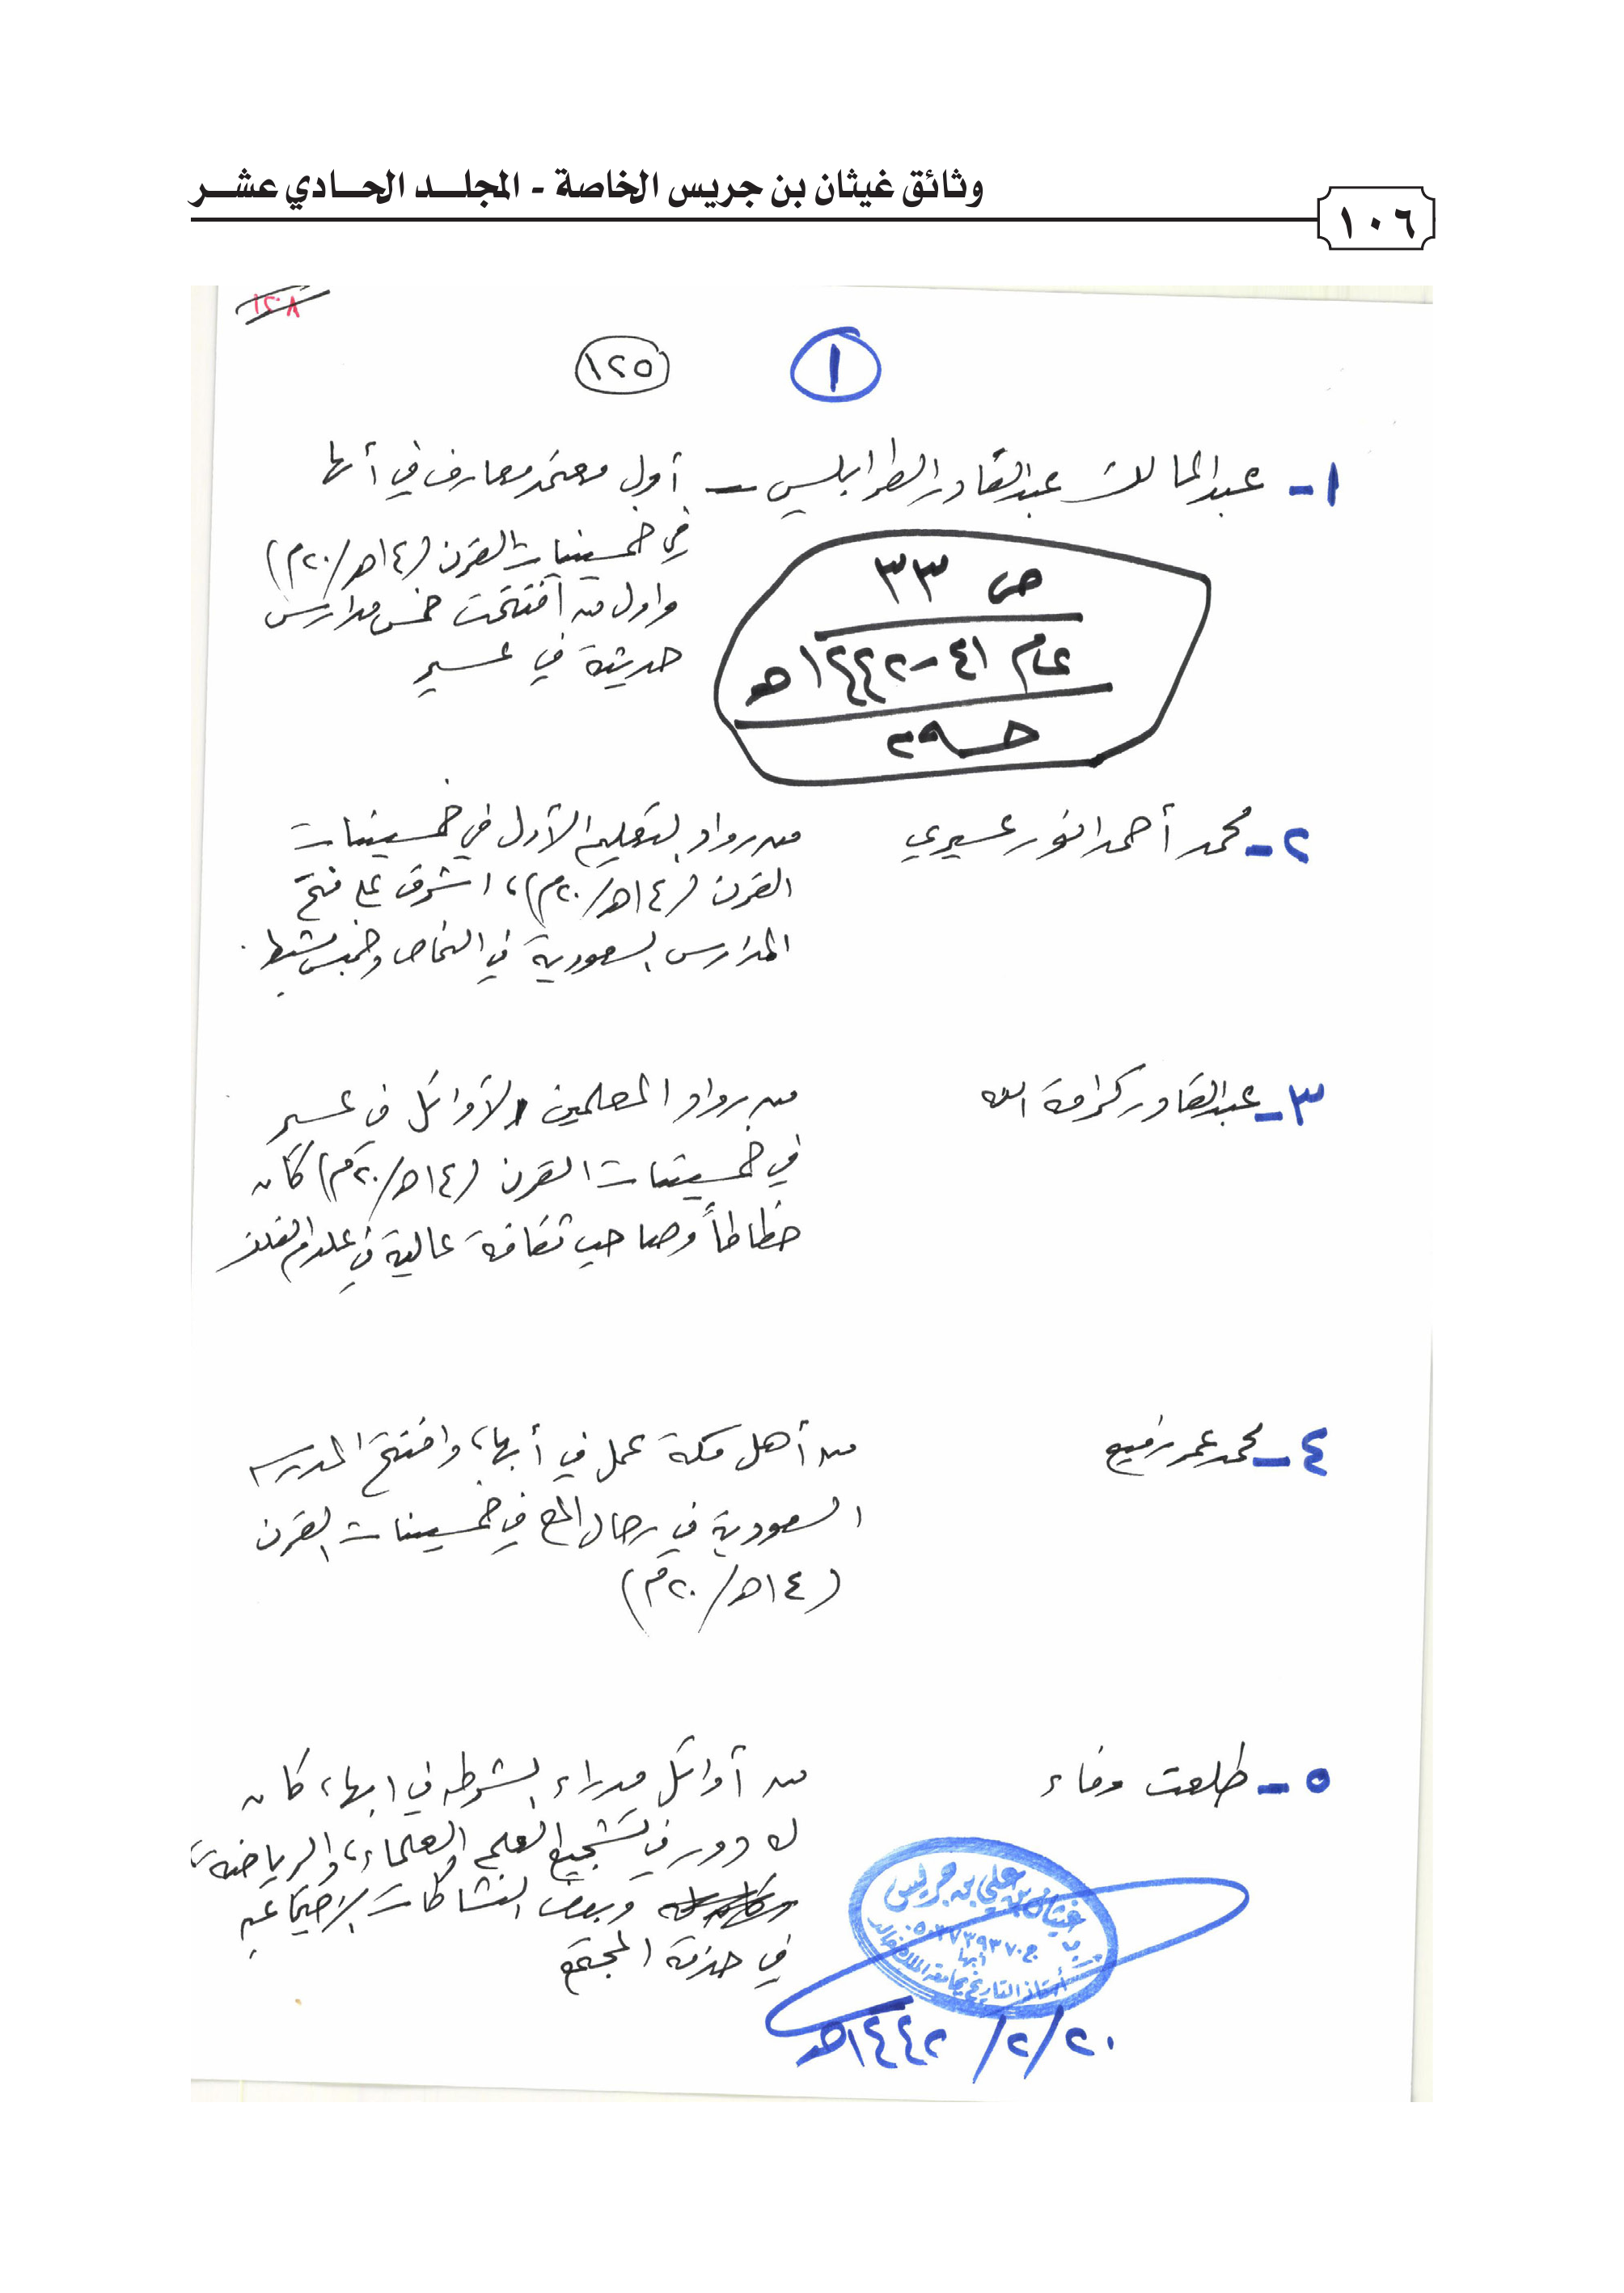 وثائق غيثان بن جريس الخاصة - المجلد الحادي عشر
١٠٦
١٢٠٨
١
١٢٥
١- عبدالمالك عبدالقادر الطرابلسي – أول معتمد معارف في أبها
في خمسينيات القرن (١٤هـ/٢٠م)
واول من افتتحت خمس مدارس
حديثة في عسير
ص ٣٣
عام ٤١-١٤٤٢هـ
٢- محمد أحمد انور عسيري
من رواد التعليم الأول في خمسينيات
القرن (١٤هـ/٢٠م)، اشرف على فتح
المدارس السعودية في النماص وخميس مشيط.
٣- عبدالقادر كرامة الله
من رواد المعلمين الأوائل في عسير
في خمسينيات القرن (١٤هـ/٢٠م) كان
خطاطاً وصاحب ثقافة عالية في علوم الفلك
٤- محمد عمر رفيع
من أهل مكة عمل في أبها، وافتتح المدرسه
السعودية في رجال المع في خمسينات القرن
(١٤هـ/٢٠م)
٥- طلعت وفاء
من أوائل مدراء الشرطه في ابها، كان
له دور في تشجيع العلم والعلماء، والرياضة،
وبعض النشاطات الاجتماعيه
في خدمة المجتمع
غيثان بن علي بن جريس
ج ٠٥٠٣٧٣٩٣٧٠
أبها
أستاذ التاريخ بجامعة الملك خالد
٢٠/٢/١٤٤٢هـ